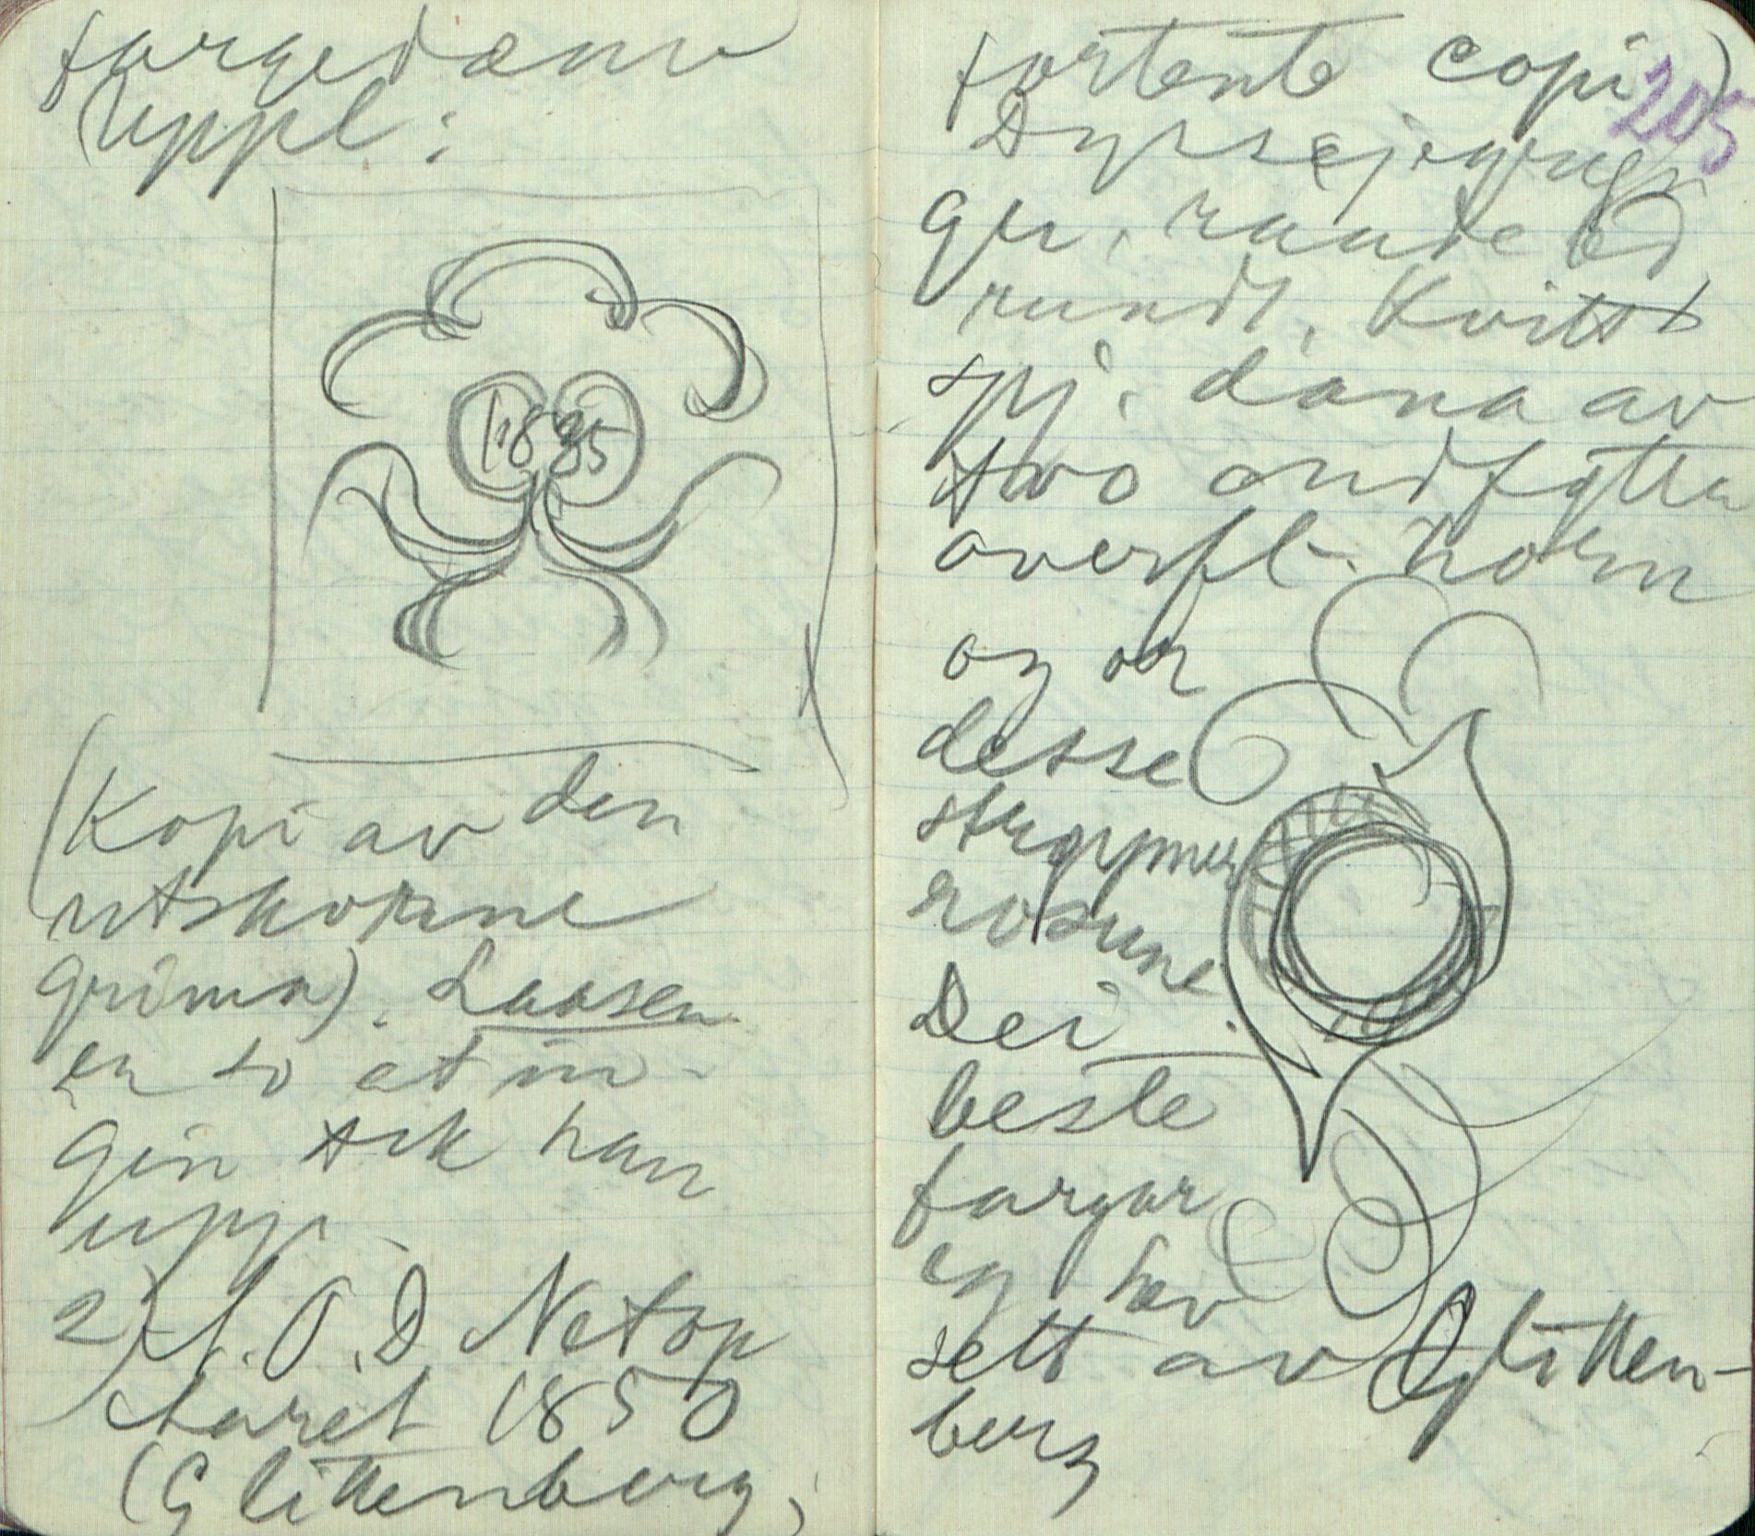 fargedæmv
(Uppl:
1835
(Kopi av den
utskorne
grima). Laasen
er so at in-
gin tek han
upp.
2) A.O.D Netop
Aaret 1850
(Glittenberg,
fortente copi)
205
ger, raude ed
rundt. Kvitt
spj. dana av
two andfytta
overfl. horn
og or
desse
strøymer
rosune.
Dei
beste
fargar
eg hev
sett av Glitten-
berg